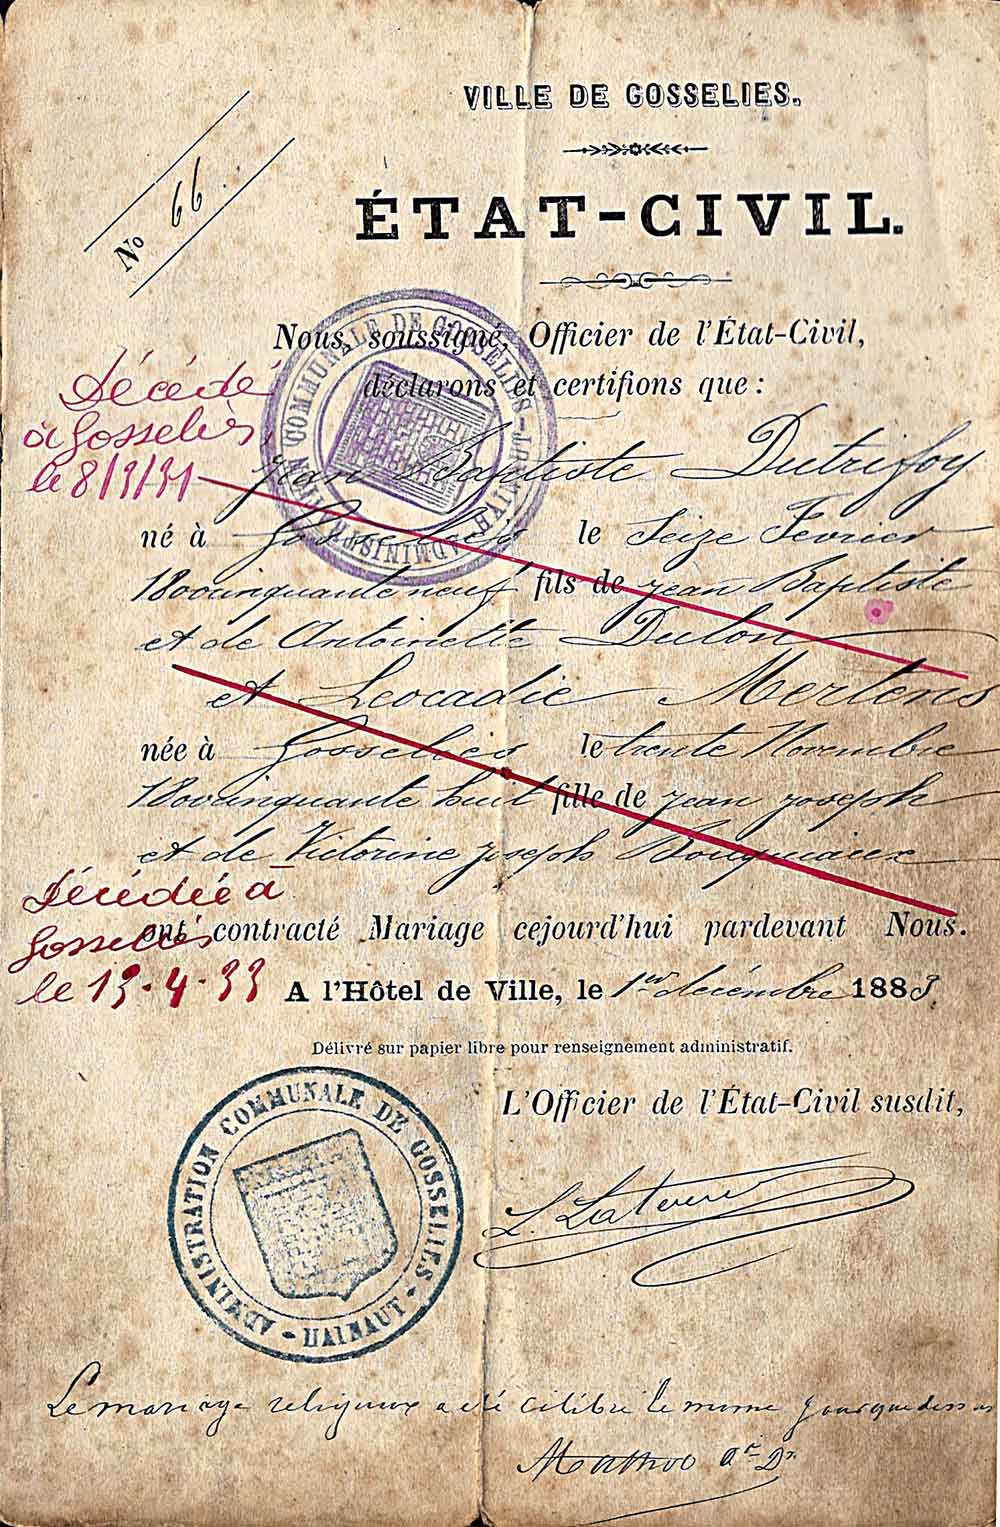 VILLE DE GOSSELIES.
No 66..
ÉTAT-CIVIL.
Nous, soussigné, Officier de l'État-Civil,
déclarons et certifions que :
Décédé
à Gosselies
le 8/3/31
Jean Baptiste Dutrifoy
né à Gosselies le Seize Fevrier
18coucinquante neuf fils de Jean Baptiste
et de Antoinette Dulon
et Leocadie Mertens
née à Gosselies le trente Novembre
18coucinquante huit fille de Jean Joseph
et de Victorine Joseph Bouquiaux
Décédée à
Gosselies
le 13.4.33
ont contracté Mariage cejourd'hui pardevant Nous.
A l'Hôtel de Ville, le 1er décembre 1883.
Délivré sur papier libre pour renseignement administratif.
L'Officier de l'État-Civil susdit,
ADMINISTRATION COMMUNALE DE GOSSELIES - HAINAUT -
ADMINISTRATION COMMUNALE DE GOSSELIES - HAINAUT -
Le mariage religieux a été célébré le meme jour que dessus